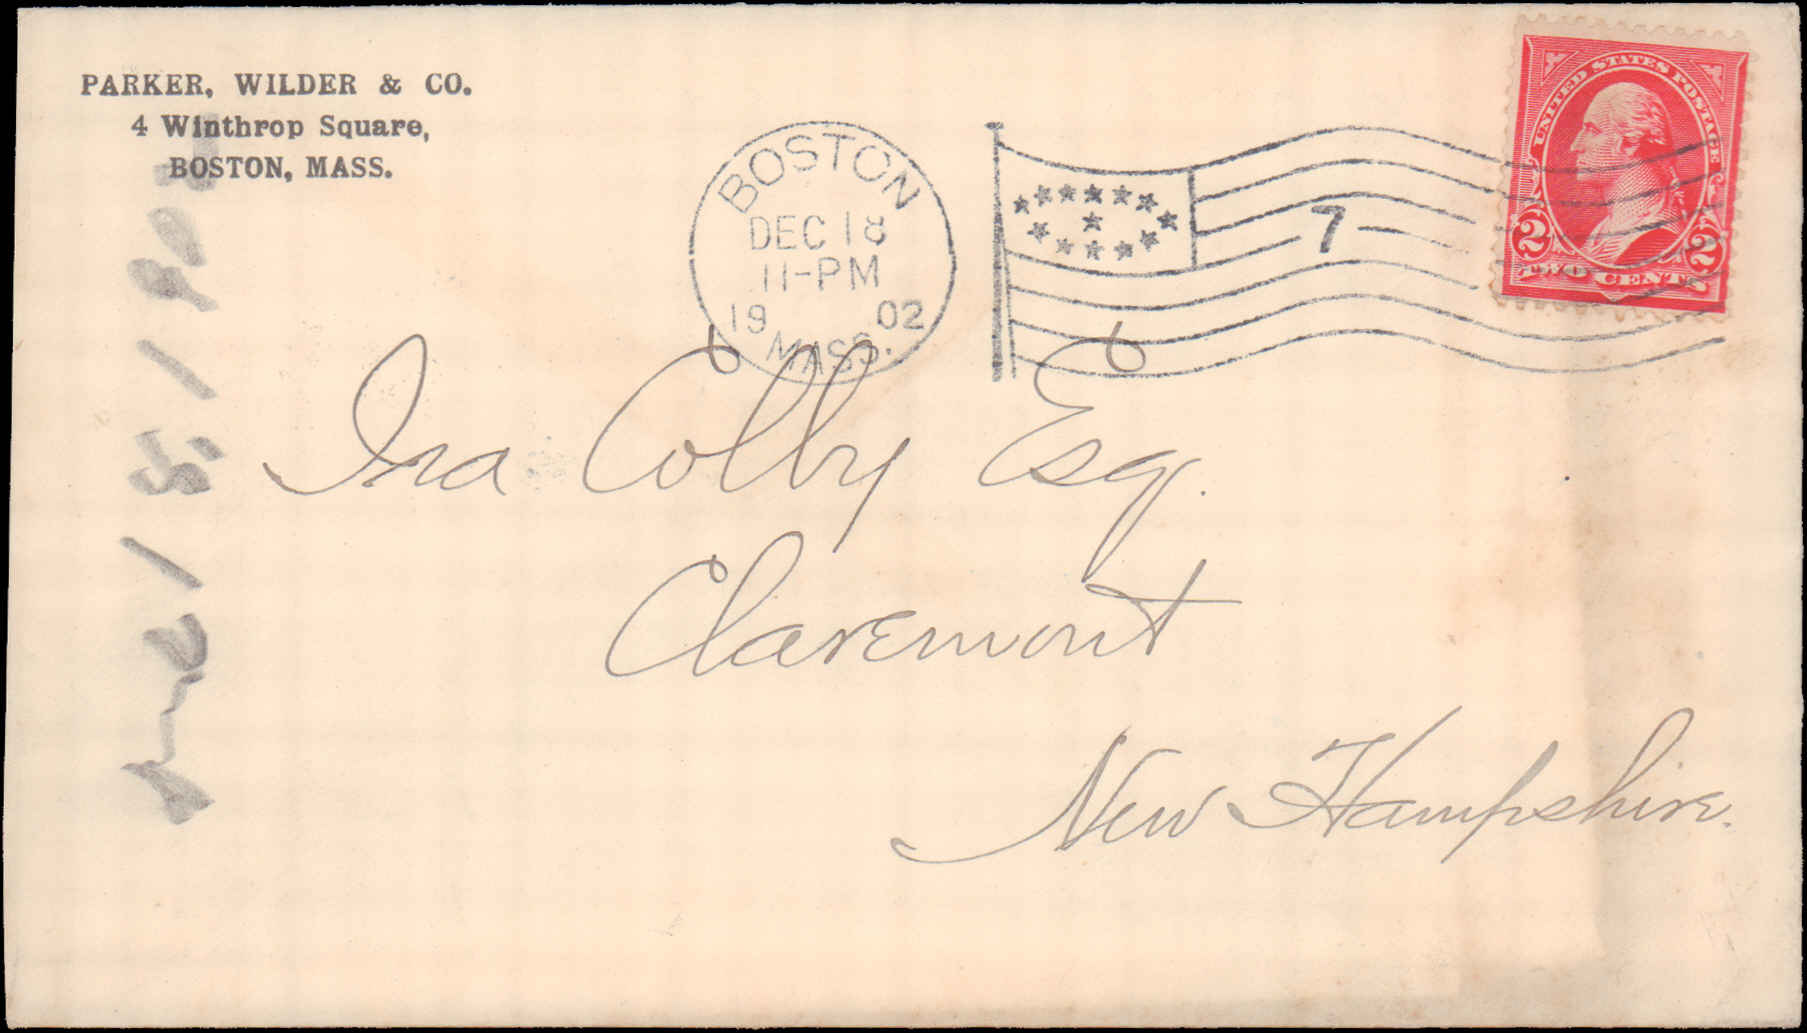 PARKER, WILDER & CO.
4 Winthrop Square,
BOSTON, MASS.
BOSTON
DEC 18
11-PM
19 02
MASS.
7
UNITED STATES POSTAGE
2 2
TWO CENTS
Ira Colby Esq.
Claremont
New Hampshire.